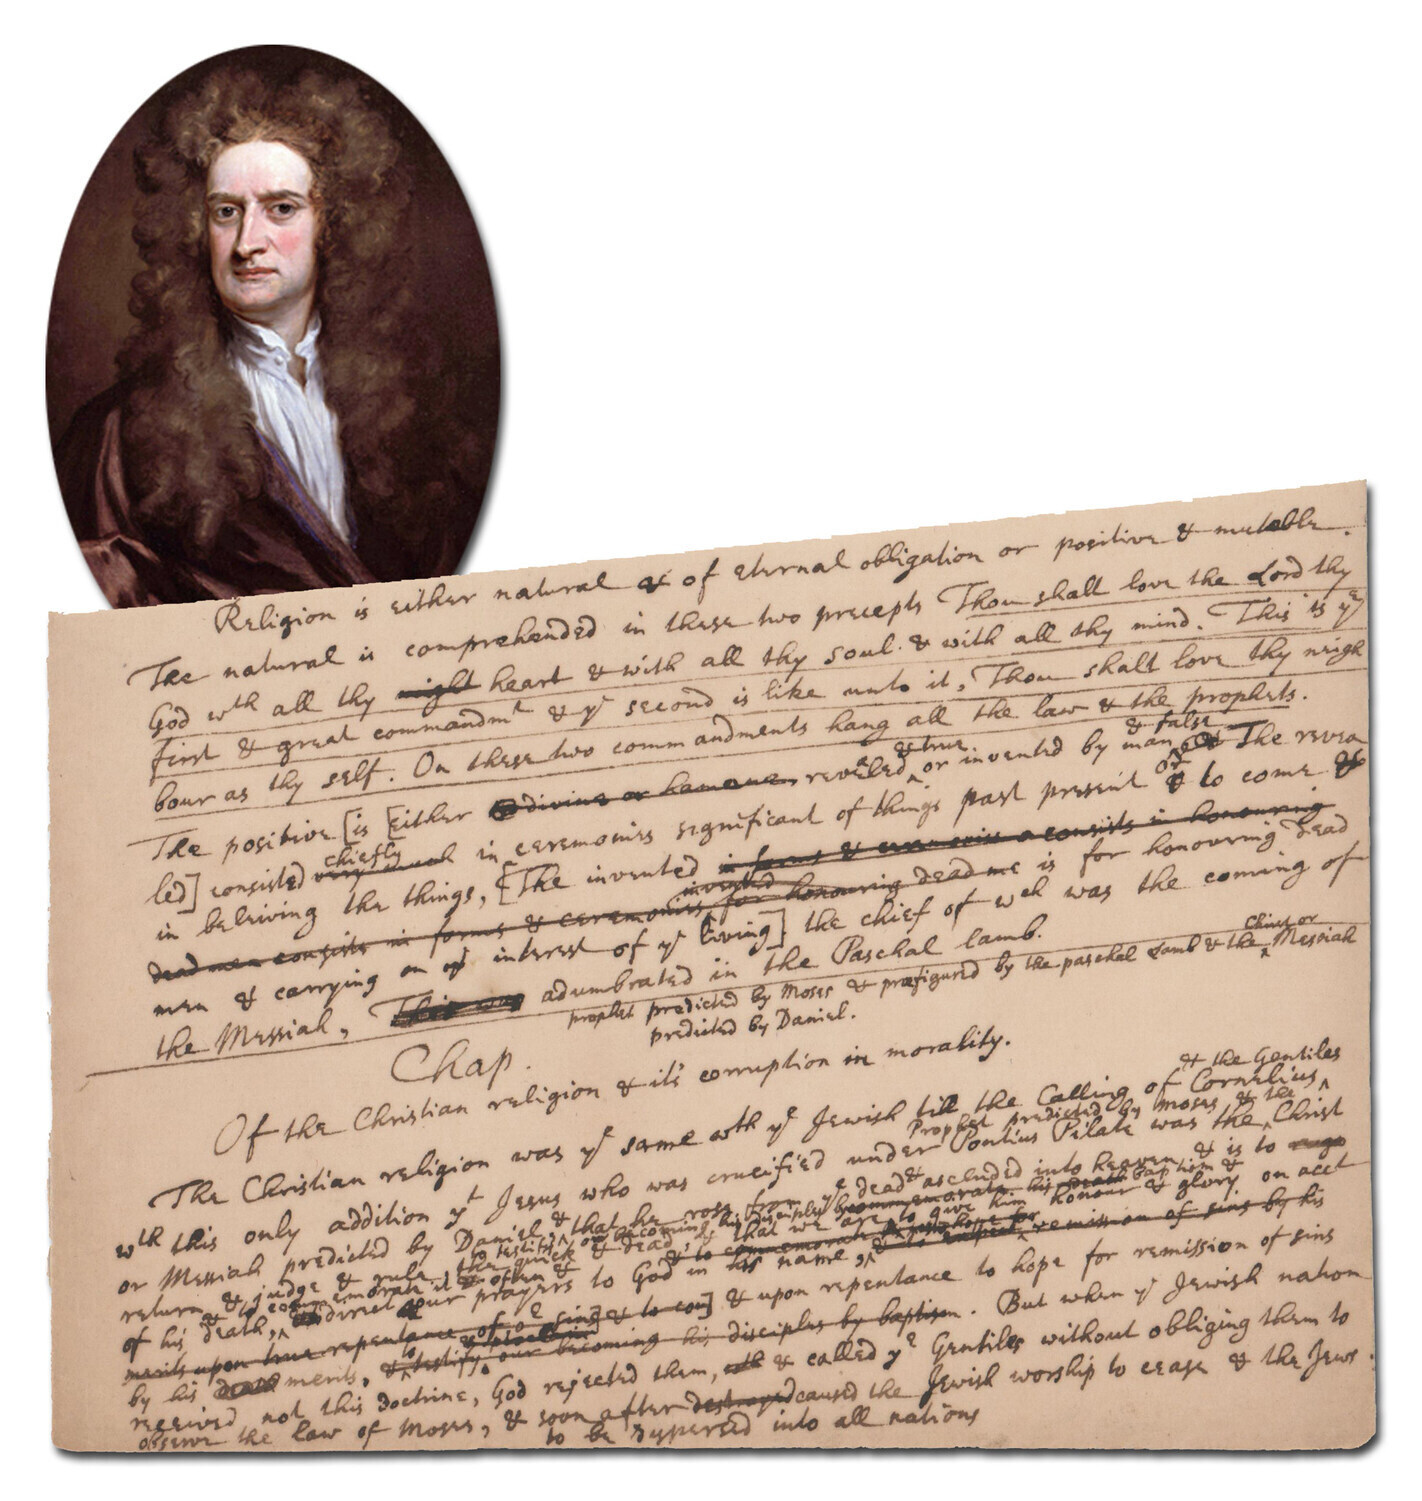 Religion is either natural & of eternal obligation or positive & mutable.
The natural is comprehended in these two precepts Thou shalt love the Lord thy
God wth all thy might heart & with all thy soul & with all thy mind. This is ye
first & great commandmt & ye second is like unto it, Thou shalt love thy neigh
bour as thy self. On these two commandments hang all the law & the prophets.
& true & false
The positive [is [either divine or humane revealed or invented by man The revea
chiefly or
led] consisted in ceremonies significant of things past present & to come &
in beleiving the things, [The invented in forms & ceremonies consists in honouring
invented
dead men consists in forms & ceremonies for honouring dead me is for honouring dead
men & carrying on ye interest of ye living] the chief of wch was the coming of
the Messiah, This was adumbrated in the Paschal lamb.
Christ or
prophet predicted by Moses & prefigured by the paschal Lamb & the Messiah
predicted by Daniel.
Chap.
Of the Christian religion & its corruption in morality.
& the Gentiles
The Christian religion was ye same wth ye Jewish till the Calling of Cornelius
Prophet predicted by Moses & the
wth this only addition yt Jesus who was crucified under Pontius Pilate was the Christ
or Messiah predicted by Daniel & that he rose from ye dead & ascended into heaven & is to
to testify our becoming his disciples by baptism &
return & judge & rule the quick & dead, & that we are to give him honour & glory on acct
to commemorate it often &
of his death, & direct our prayers to God in his name, & upon repentance to hope for remission of sins
merits upon true repentance of or sins & to
by his death merits, & testify our becoming his disciples by baptism. But when ye Jewish nation
received not this doctrine, God rejected them, & called ye Gentiles without obliging them to
observe the law of Moses, & soon after destroyed caused the Jewish worship to cease & the Jews
to be dispersed into all nations